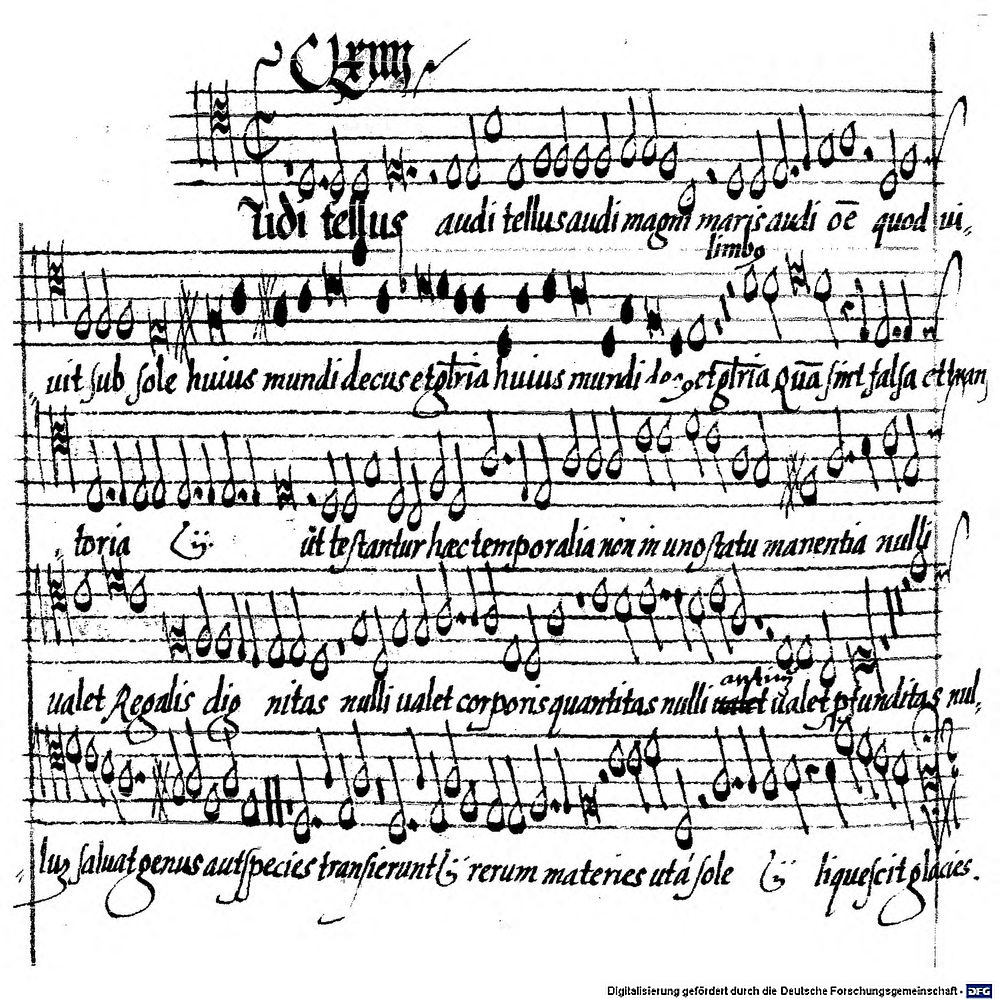 CLxiiij
Audi tellus audi tellus audi magni maris audi oē quod ui„
limbo
uit sub sole huius mundi decus et glr̄ia huius mundi et glr̄ia Quā sint falsa et tran
toria ij ut testantur hæc temporalia non in uno statu manentia nulli
ualet Regalis dig nitas nulli ualet corporis quantitas nulli ualet pfunditas nul„
saluat genus aut species transierunt ij rerum materies ut á sole ij liquescit glacies.
Digitalisierung gefördert durch die Deutsche Forschungsgemeinschaft - DFG